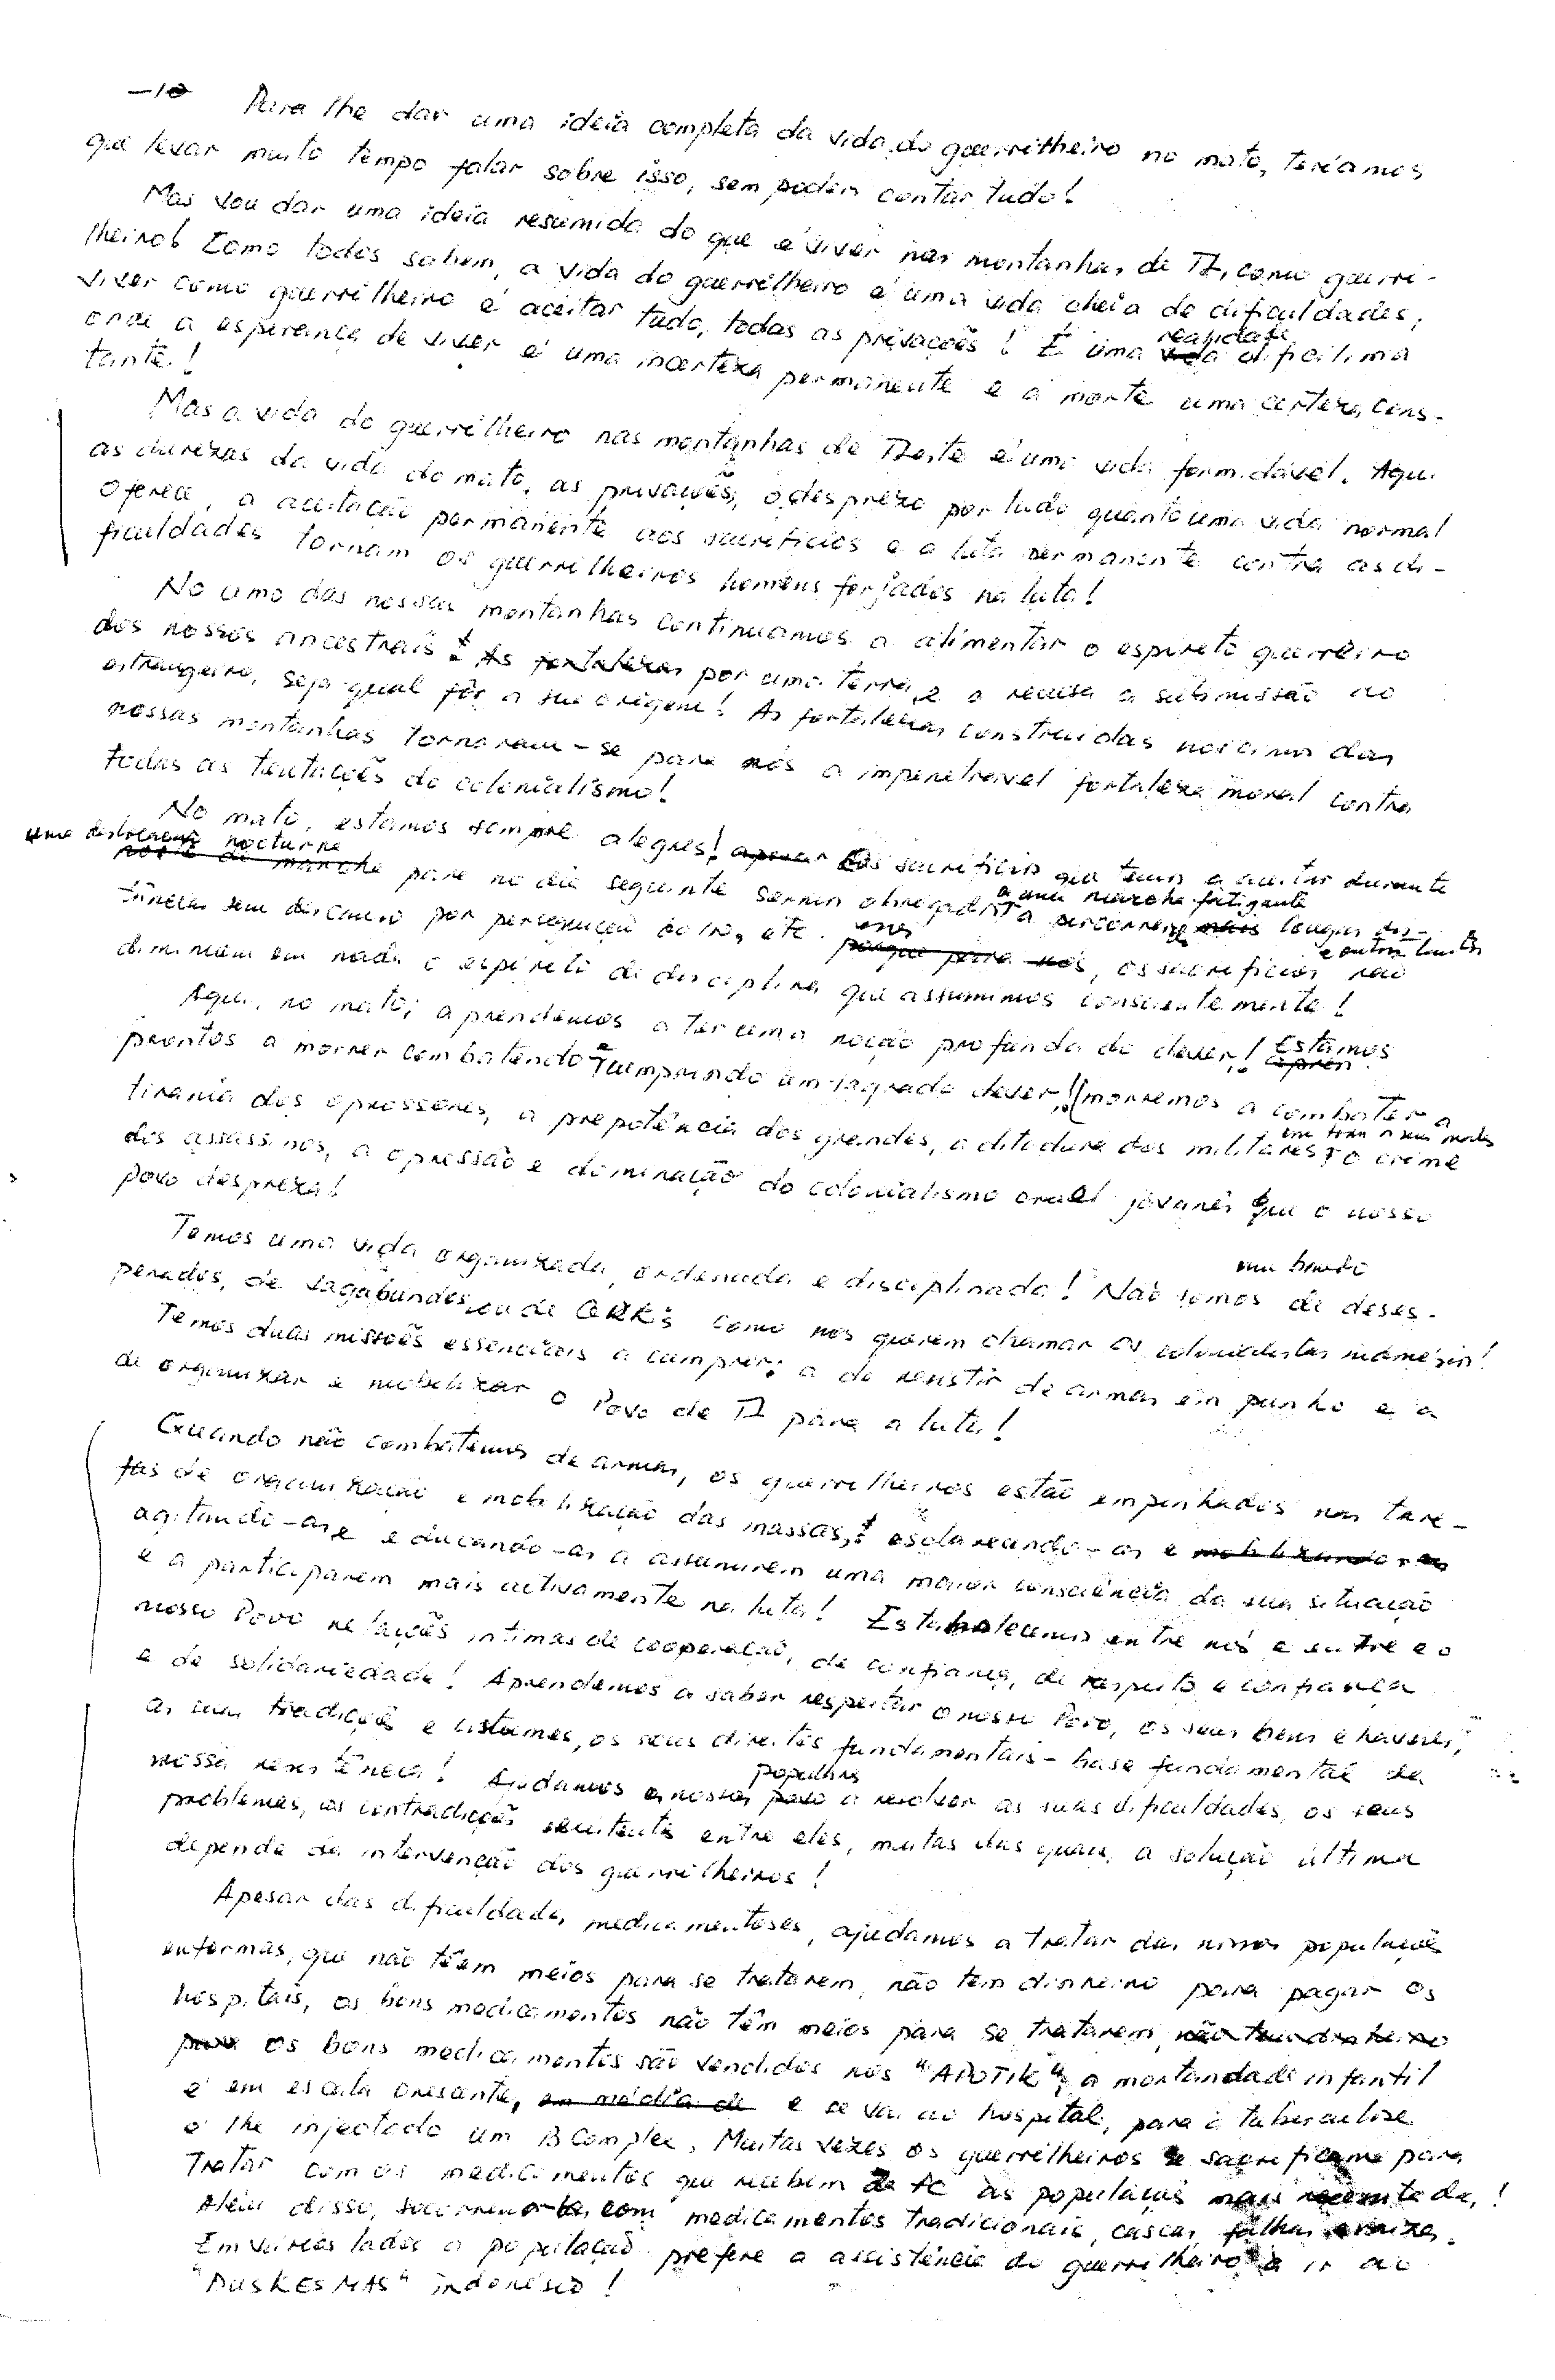 —10 Para lhe dar uma ideia completa da vida do guerrilheiro no mato, teríamos
que levar muito tempo falar sobre isso, sem poder contar tudo!
Mas vou dar uma ideia resumida do que é viver nas montanhas de TL, como guerri-
lheiro! Como todos sabem, a vida do guerrilheiro é uma vida cheia de dificuldades,
viver como guerrilheiro é aceitar tudo, todas as privações! É uma realidade dificílima
onde a esperança de viver é uma incerteza permanente e a morte uma certeza cons-
tante!
Mas a vida do guerrilheiro nas montanhas de TLeste é uma vida formidável. Aqui
as durezas da vida do mato, as privações, o desprezo por tudo quanto uma vida normal
oferece, a aceitação permanente aos sacrifícios e a luta permanente contra as di-
ficuldades tornam os guerrilheiros homens forjados na luta!
No cimo das nossas montanhas continuamos a alimentar o espírito guerreiro
dos nossos ancestrais! As fortalezas por uma terra, e a recusa a submissão ao
estrangeiro, seja qual fôr a sua origem! As fortalezas construídas no cimo das
nossas montanhas tornaram-se para nós a impenetrável fortaleza moral contra
todas as tentações do colonialismo!
No mato, estamos sempre alegres! apesar Os sacrifícios que temos a aceitar durante
uma deslocação nocturna
noite de marcha para no dia seguinte sermos obrigados a percorrer mais longas dis-
a uma marcha fatigante
tâncias sem descanso por perseguição do In, etc. porque para nós, os sacrifícios não
esses e outros tantos
diminuem em nada o espírito de disciplina que assumimos conscientemente!
Aqui, no mato, aprendemos a ter uma noção profunda do dever! Estamos apren
prontos a morrer combatendo e cumprindo um sagrado dever! (morremos a combater a
tirania dos opressores, a prepotência dos grandes, a ditadura dos militares, o crime
em toda a sua
dos assassinos, a opressão e dominação do colonialismo cruel javanês que o nosso
povo despreza!
Temos uma vida organizada, ordenada e disciplinada! Não somos um bando de deses-
perados, de vagabundos, ou de GPK's como nos querem chamar os colonialistas indonésios!
Temos duas missões essenciais a cumprir: a de resistir de armas em punho e a
de organizar e mobilizar o Povo de TL para a luta!
Quando não combatemos de armas, os guerrilheiros estão empenhados nas tare-
fas de organização e mobilização das massas, esclarecendo-as e mobilizando-as
agitando-as e educando-as a assumirem uma maior consciência da sua situação
e a participarem mais activamente na luta! Estabelecemos entre nós e entre e o
nosso Povo relações íntimas de cooperação, de confiança, de respeito e confiança
e de solidariedade! Aprendemos a saber respeitar o nosso Povo, os seus bens e haveres,
as suas tradições e costumes, os seus direitos fundamentais - base fundamental da
nossa resistência! Ajudamos as nossas populações povo a resolver as suas dificuldades, os seus
problemas, as contradições existentes entre eles, muitas das quais, a solução última
depende da intervenção dos guerrilheiros!
Apesar das dificuldades medicamentosas, ajudamos a tratar das nossas populações
enfermas, que não têem meios para se tratarem, não tem dinheiro para pagar os
hospitais, os bons medicamentos não têm meios para se tratarem, não tem dinheiro
para os bons medicamentos são vendidos nos "APOTIK", a mortandade infantil
é em escala crescente, em média de e se vai ao hospital, para a tuberculose
é lhe injectado um B Complex. Muitas vezes os guerrilheiros se sacrificam para
tratar com os medicamentos que recebem às populações mais necessitadas!
Além disso, socorremo-las com medicamentos tradicionais, cascas, folhas e raízes.
Em vários lados a população prefere a assistência do guerrilheiro a ir ao
"PUSKESMAS" indonésio!